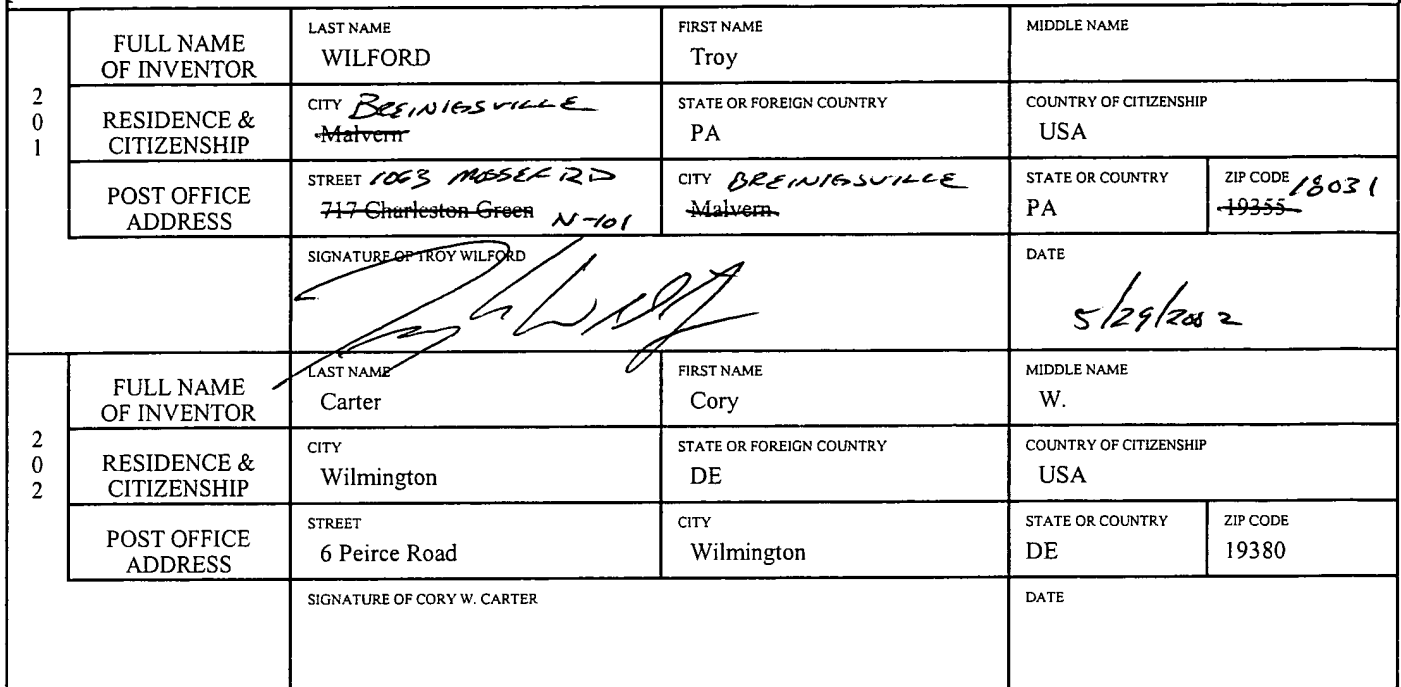 201
FULL NAME
OF INVENTOR
LAST NAME
WILFORD
FIRST NAME
Troy
MIDDLE NAME
RESIDENCE &
CITIZENSHIP
CITY BREINIGSVILLE
Malvern
STATE OR FOREIGN COUNTRY
PA
COUNTRY OF CITIZENSHIP
USA
POST OFFICE
ADDRESS
STREET 1063 MOSER RD
717 Charleston Green N-101
CITY BREINIGSVILLE
Malvern
STATE OR COUNTRY
PA
ZIP CODE 18031
19355
SIGNATURE OF TROY WILFORD
DATE
5/29/2002
202
FULL NAME
OF INVENTOR
LAST NAME
Carter
FIRST NAME
Cory
MIDDLE NAME
W.
RESIDENCE &
CITIZENSHIP
CITY
Wilmington
STATE OR FOREIGN COUNTRY
DE
COUNTRY OF CITIZENSHIP
USA
POST OFFICE
ADDRESS
STREET
6 Peirce Road
CITY
Wilmington
STATE OR COUNTRY
DE
ZIP CODE
19380
SIGNATURE OF CORY W. CARTER
DATE